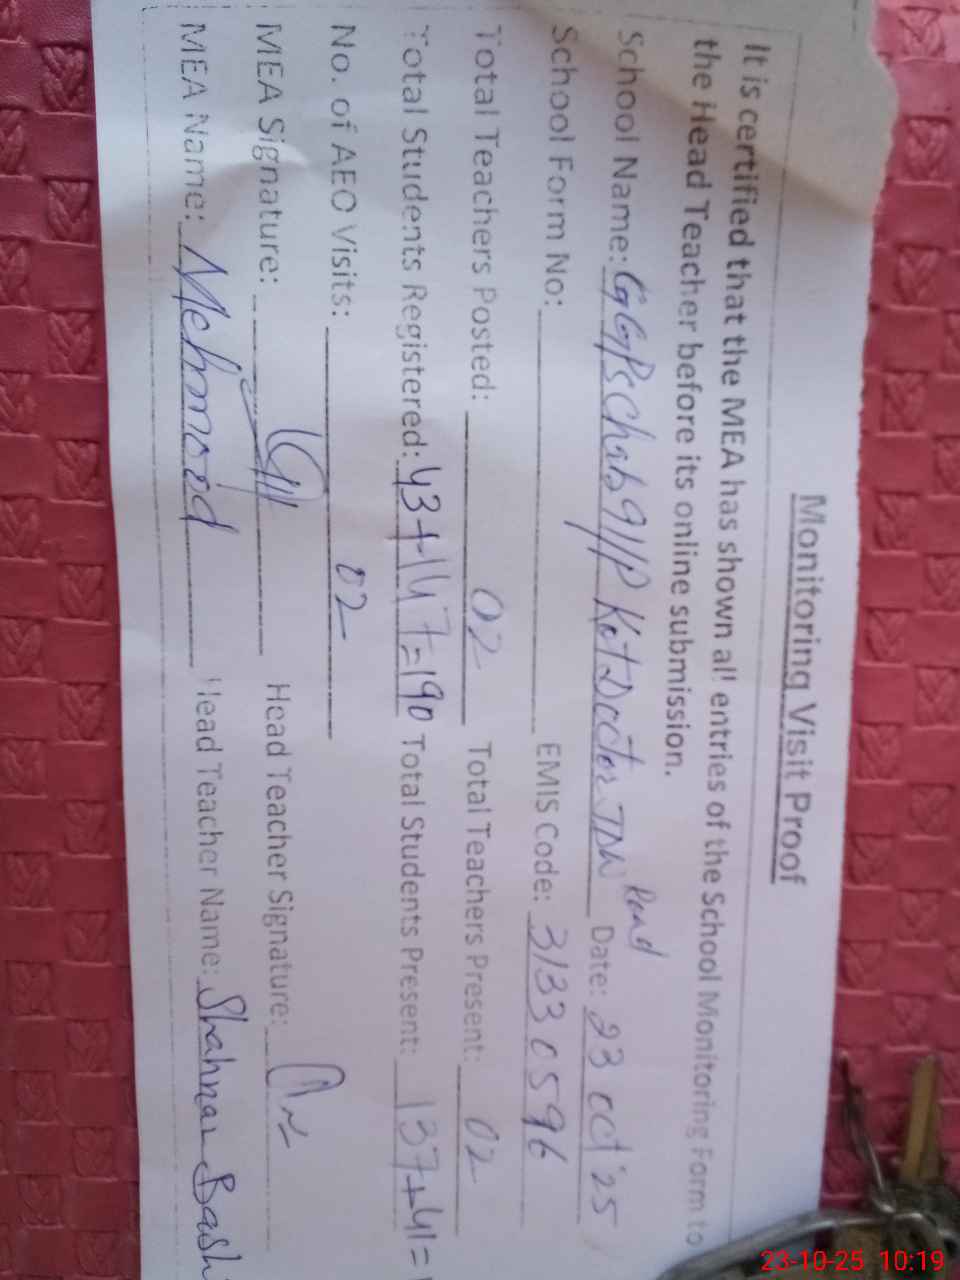 Monitoring Visit Proof
It is certified that the MEA has shown all entries of the School Monitoring Form to
the Head Teacher before its online submission.
School Name: GGPS Chab 9/1P Kot Doctor TDW Road Date: 23 Oct '25
School Form No: EMIS Code: 31330596
Total Teachers Posted: 02 Total Teachers Present: 02
Total Students Registered: 43+147=190 Total Students Present: 137+41=
No. of AEO Visits: 02
MEA Signature: Head Teacher Signature:
MEA Name: Mehmood Head Teacher Name: Shahnaz Bash
23-10-25 10:19